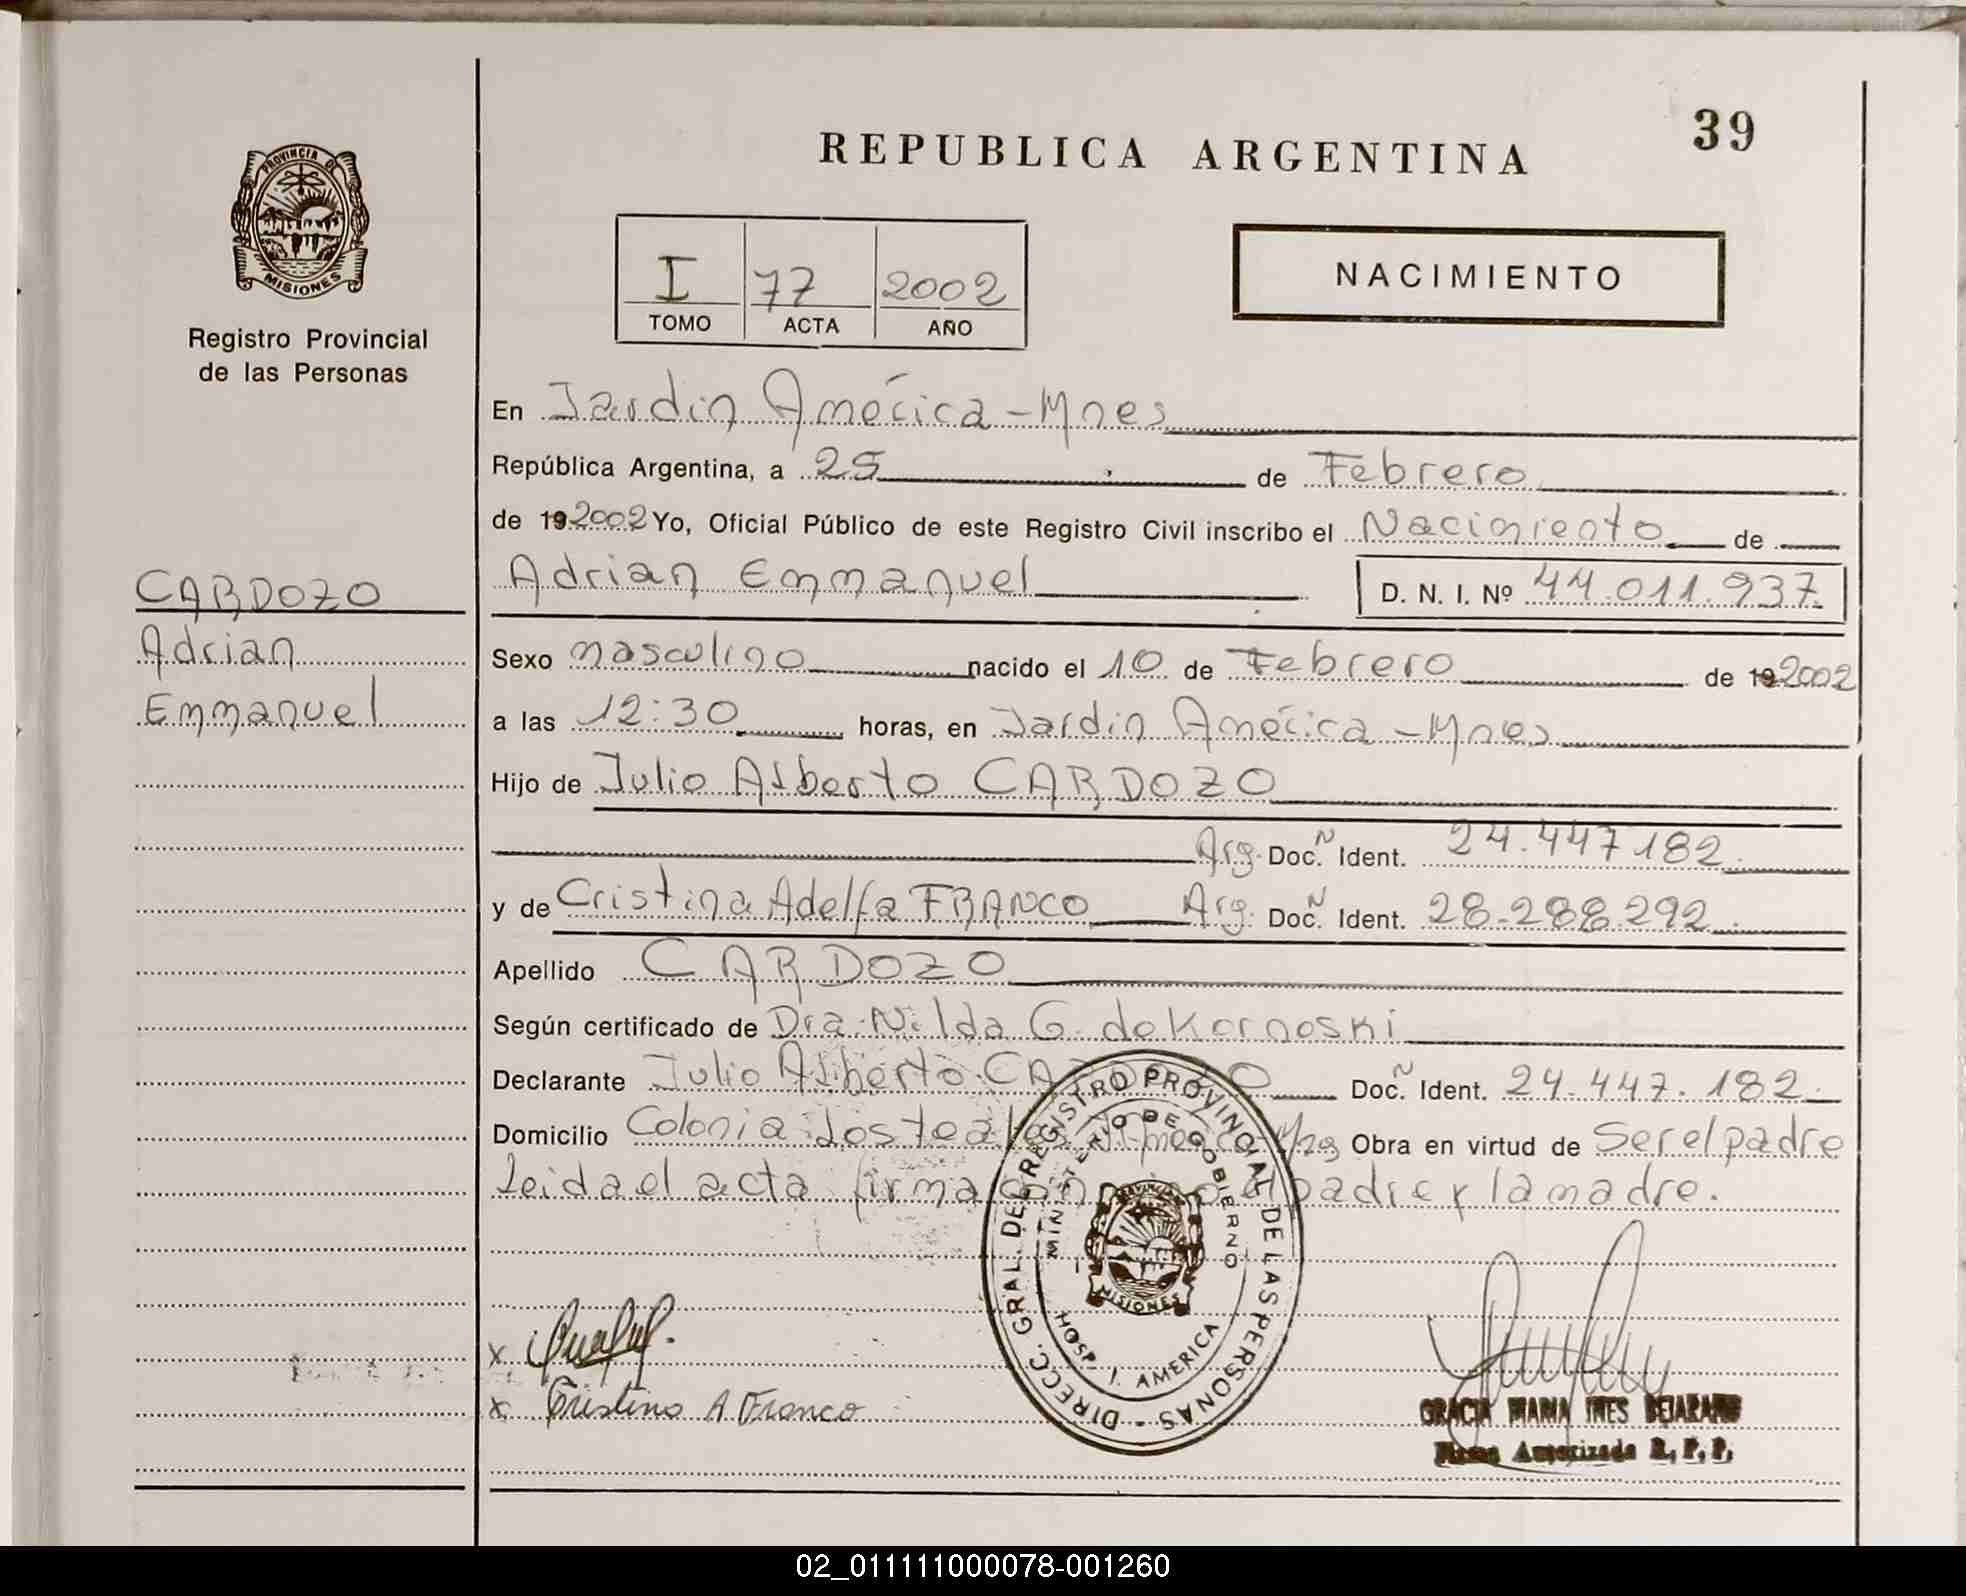 REPUBLICA ARGENTINA
39
PROVINCIA DE
MISIONES
Registro Provincial
de las Personas
I 77 2002
TOMO ACTA AÑO
NACIMIENTO
En Jardin América - Mnes
República Argentina, a 25 de Febrero
de 19 2002 Yo, Oficial Público de este Registro Civil inscribo el Nacimiento de
Adrian Emmanuel D. N. I. Nº 44.011.937
CARDOZO
Adrian
Emmanuel
Sexo masculino nacido el 10 de Febrero de 19 2002
a las 12:30 horas, en Jardin América - Mnes
Hijo de Julio Alberto CARDOZO
Arg. Doc. N Ident. 24.447.182
y de Cristina Adelfa FRANCO Arg. Doc. N Ident. 28.288.292
Apellido CARDOZO
Según certificado de Dra. Nilda G. de Kornoski
Declarante Julio Alberto CARDOZO Doc. N Ident. 24.447.182
Domicilio Colonia Los Obra en virtud de Ser el padre
Leida el acta firma padre y la madre.
DIRECC. GRAL. DEL REGISTRO PROVINCIAL DE LAS PERSONAS
MINISTERIO DE GOBIERNO
MISIONES
HOSP. J. AMERICA
x
x Cristina A Franco
GRACIA MARIA INES BEJARANO
Firma Autorizada R. P. P.
02_011111000078-001260